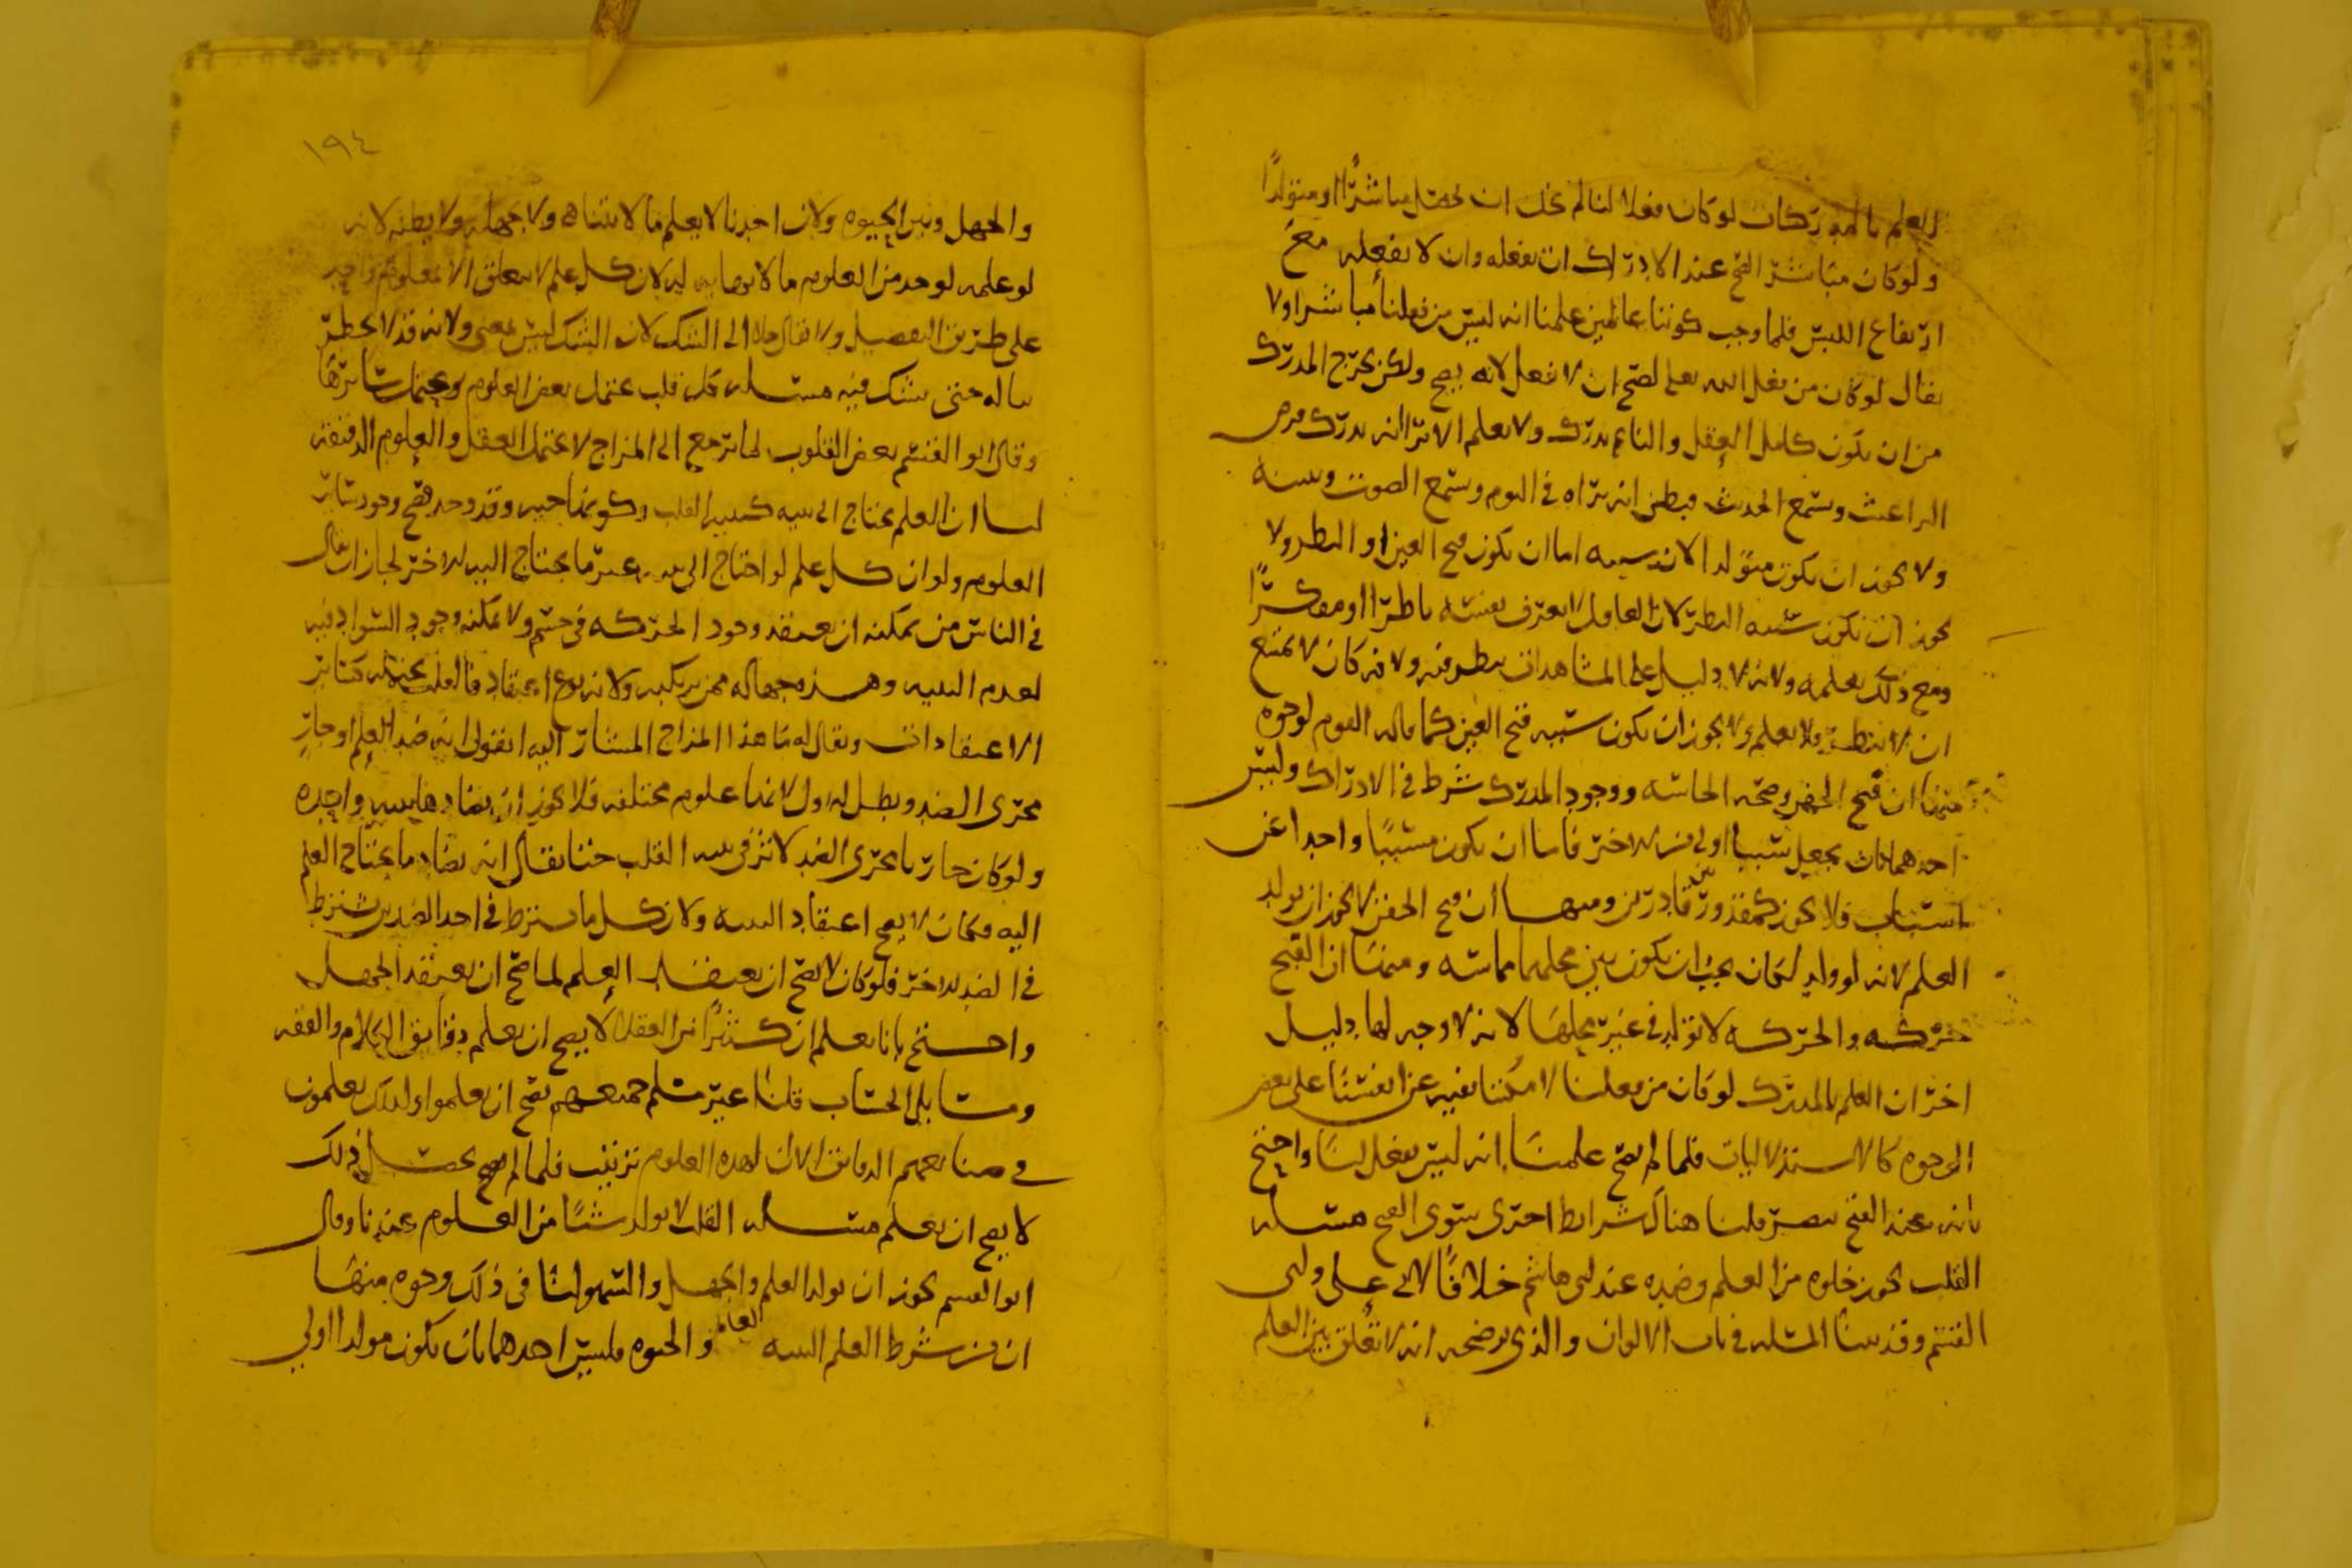 العلم بالمدركات لو كان فعلا لنا لم يخل ان يحصل مباشرًا او متولدًا
ولو كان مباشرا لصح عند الادراك ان نفعله وان لا نفعله مع
ارتفاع اللبس فلما وجب كوننا عالمين علمنا انه ليس من فعلنا مباشرا ولا
يقال لو كان من فعل الله تعالى لصح ان لا يفعل لانه يصح ولكن يخرج المدرك
من ان يكون كامل العقل والنائم يدرك ولا يعلم الا ترا انه يدرك قرص
البراغيث ويسمع الحديث فيظن انه يراه في النوم ويسمع الصوت
ولا يجوز ان يكون متولدا لان سببه اما ان يكون فتح العين او النظر ولا
يجوز ان يكون سببه النظر لان العاقل يعرف نفسه ناظرا او مفكرًا
ومع ذلك يعلمه ولانه لا دليل على المشاهدات ينظر فيه ولانه كان لا يمتنع
ان لا ينظر ولا يعلم ولا يجوز ان يكون سببه فتح العين كما قاله القوم لوجوه
منها ان فتح الجفن وصحة الحاسة ووجود المدرك شرط في الادراك وليس
احدهما بان يجعل سببا اولى من الاخر فاما ان يكون مسببًا واحدا عن
اسباب فلا يجوز كمقدور بين قادرين ومنها ان فتح الجفن لا يجوز ان يولد
العلم لانه لو ولد لكان يجب ان يكون بين محلهما مماسة ومنها ان الفتح
حركة والحركة لا تولد في غير محلها لانه لا وجه لها دليل
اخر ان العلم بالمدرك لو كان من فعلنا لامكننا نفيه عن انفسنا على بعض
الوجوه كالاستدلاليات فلما لم يصح علمنا انه ليس بفعل لنا واحتج
بانه عند الفتح يبصر قلنا هناك شرايط اخرى سوى الفتح مسئلة
القلب يجوز خلوه من العلم وضده عند ابي هاشم خلافًا لابي علي وابي
القسم وقد بينا المسلة في باب الالوان والذي يوضحه انه لا تعلق بين العلم
١٩٤
والجهل وبين الحيوة ولان احدنا لا يعلم ما لا يتناها ولا يجهله ولا يظنه لانه
لو علمه لوجد من العلوم ما لا نهاية له لان كل علم لا يتعلق الا بمعلوم واحد
على طريق التفصيل ولا يقال خلا الى الشك لان الشك ليس بمعنى ولانه قد لا يخطر
بباله حتى يشك فيه مسئلة كل قلب يحتمل بعض العلوم يحتمل سائرها
وقال ابو القسم بعض القلوب لما ترجع الى المزاج لا يحتمل العقل والعلوم الدقيقة
لنا ان العلم يحتاج الى بنية كبنية القلب وكونها حية وقد وجد فصح وجود سائر
العلوم ولو ان كل علم لو احتاج الى بنية غير ما يحتاج اليه الاخر لجاز ان يقال
في الناس من يمكنه ان يعتقد وجود الحركة في جسم ولا يمكنه وجود السواد فيه
لعدم البنية وهذه جهالة ممن يركبه ولانه نوع اعتقاد فالقلب يحتمله كسائر
الاعتقادات ويقال له ما هذا المزاج المشار اليه اتقول انه ضد العلم او جار
مجرى الضد ويبطل الاول لانها علوم مختلفة فلا يجوز ان يضادها بنية واحدة
ولو كان جار مجرى الضد لاثر في بنية القلب حتى يقال انه يضاد ما يحتاج العلم
اليه فكان لا يصح اعتقاد البتة ولان كل ما يشترط في احد الضدين يشترط
في الضد الاخر فلو كان لا يصح ان يعتقد العلم لما صح ان يعتقد الجهل
واحتج بانا نعلم ان كثيرًا من العقلا لا يصح ان يعلم دقايق الكلام والفقه
ومسايل الحساب قلنا غير مسلم جميعهم يصح ان يعلموا ولذلك يعلمون
في صنائعهم الدقائق الا ان لهذه العلوم ترتيب فلما لم يحصل ذلك
لا يصح ان يعلم مسئلة القلب لا يولد شيئًا من العلوم عندنا وقال
ابو القسم يجوز ان يولد العلم والجهل والسهو لنا في ذلك وجوه منها
ان من شرط العلم البنية والحيوة فليس احدهما بان يكون مولدا اولى